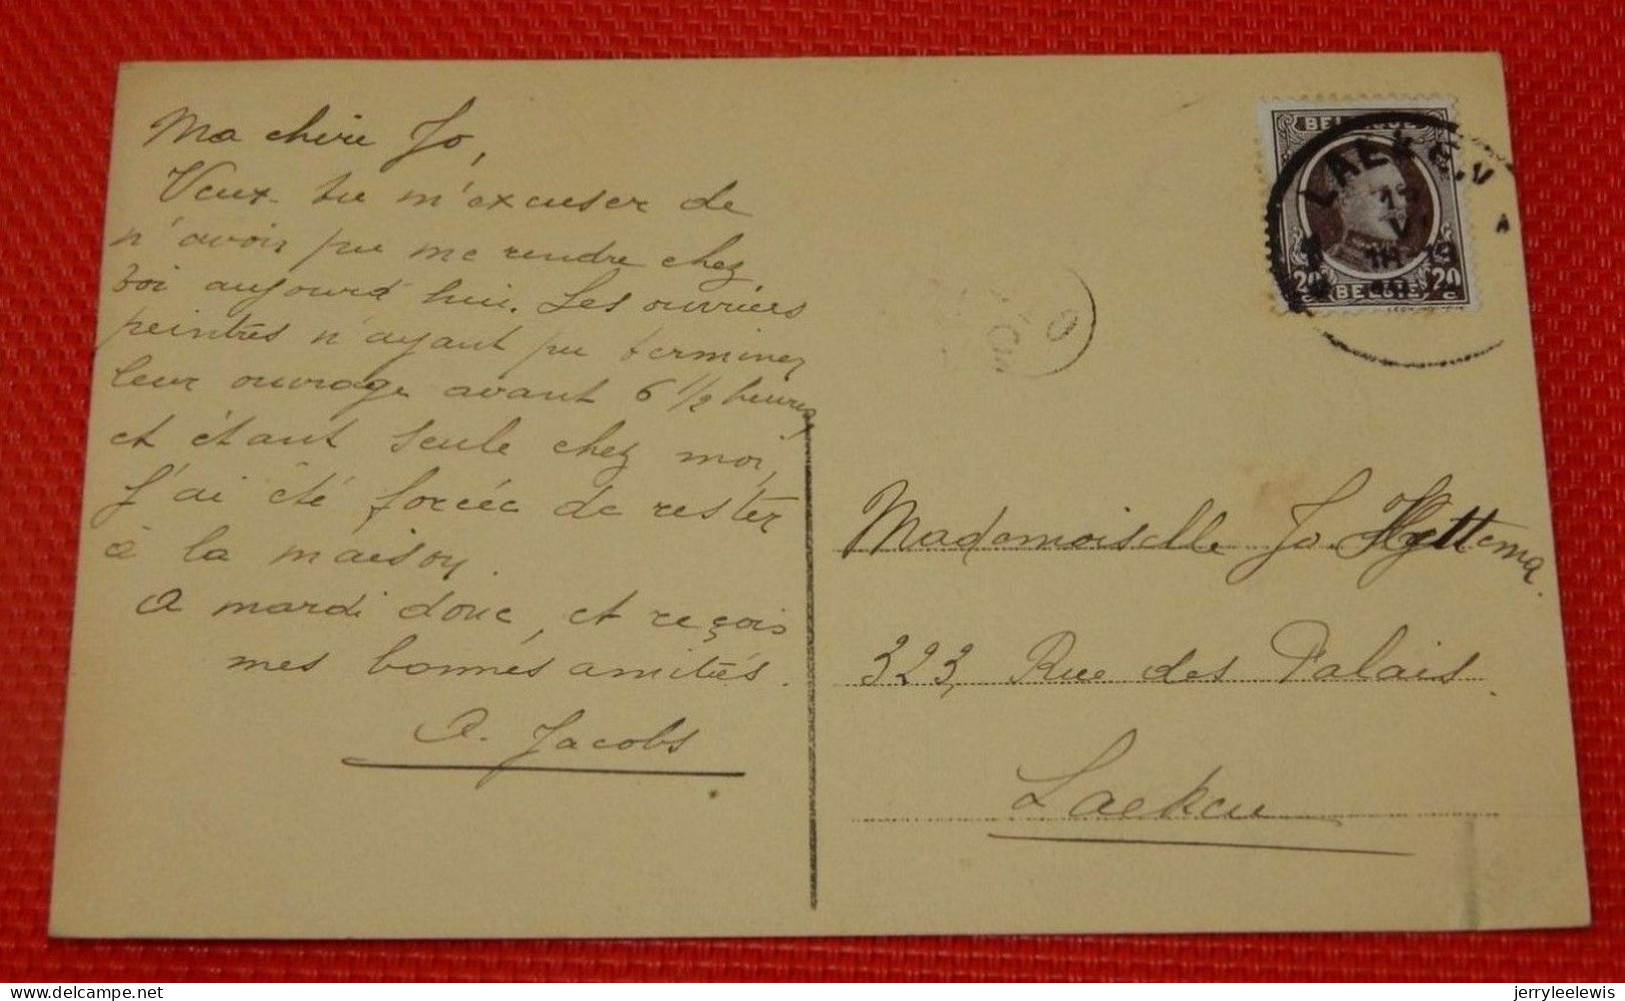 Ma chérie Jo,
Veux-tu m'excuser de
n'avoir pu me rendre chez
toi aujourd'hui. Les ouvriers
peintres n'ayant pu terminer
leur ouvrage avant 6 1/2 heures
et étant seule chez moi,
j'ai été forcée de rester
à la maison.
A mardi donc, et reçois
mes bonnes amitiés.
A. Jacobs
BELGIQUE
LAEKEN
20 20
BELGIE
Mademoiselle Jo. Hyttema.
323, Rue des Palais.
Laeken
delcampe.net
jerryleelewis